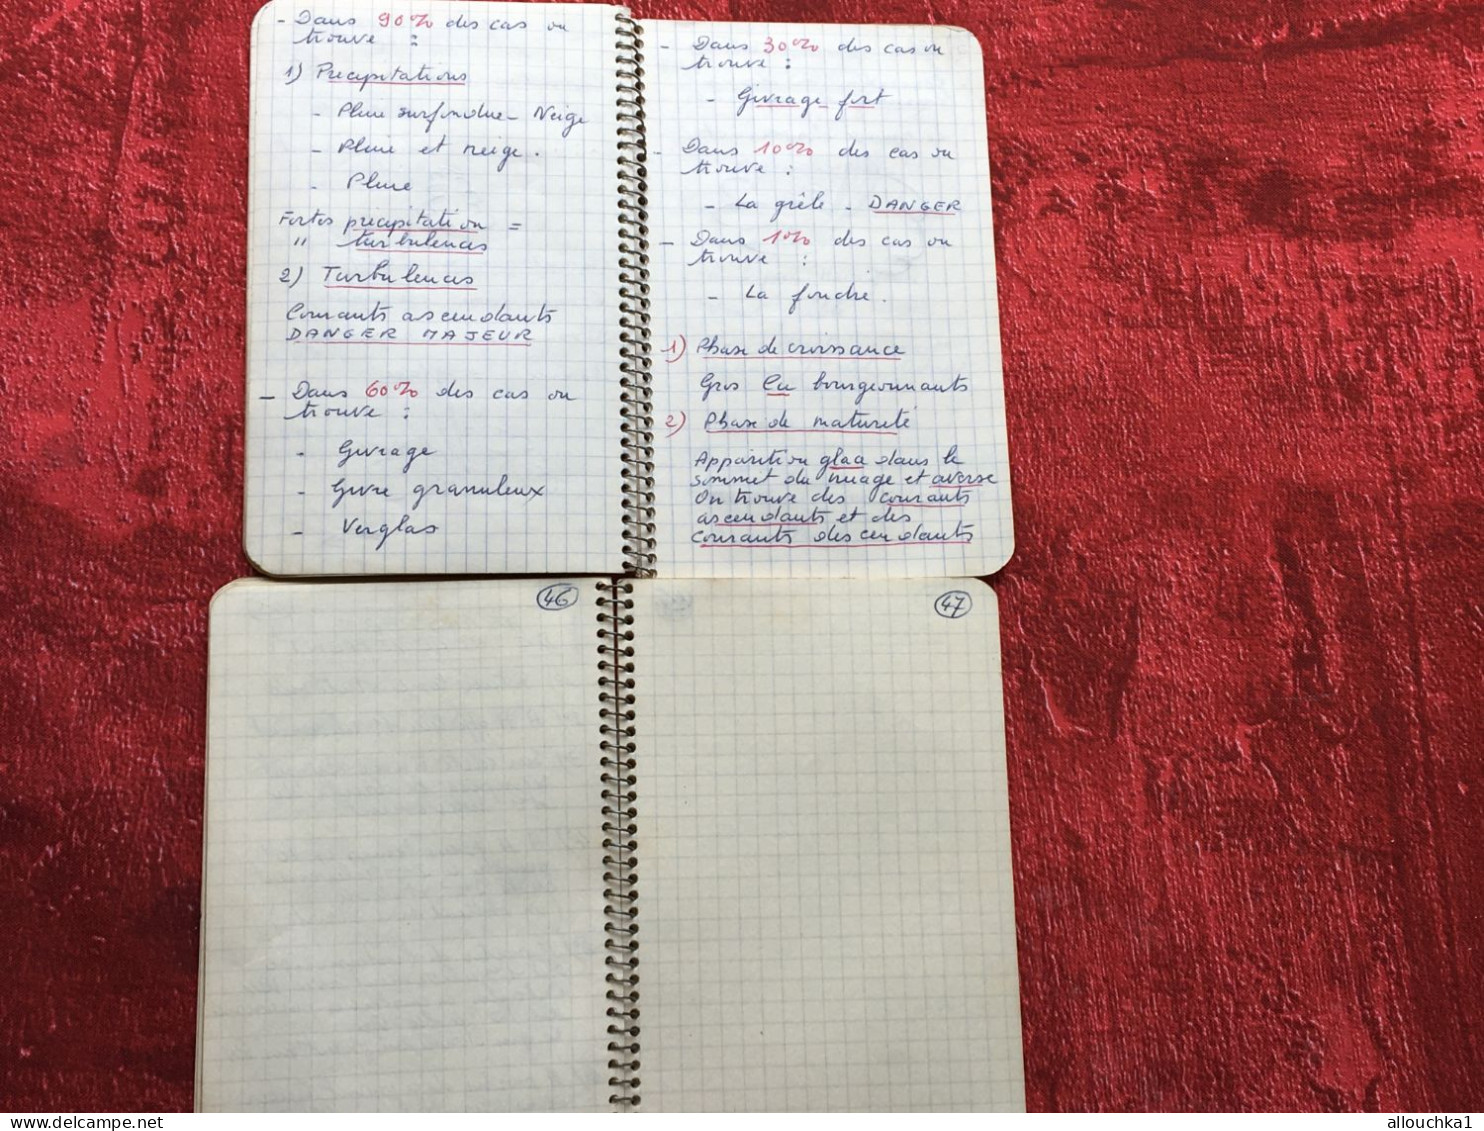 - Dans 90% des cas on
trouve :
1) Precipitations
- Pluie surfondue - Neige
- Pluie et neige.
- Pluie
Fortes précipitation =
" turbulences
2) Turbulences
Courants ascendants
DANGER MAJEUR
- Dans 60% des cas on
trouve :
- Givrage
- Givre granuleux
- Verglas
- Dans 30% des cas on
trouve :
- Givrage fort
- Dans 10% des cas on
trouve :
- La grêle - DANGER
- Dans 1% des cas on
trouve :
- La foudre.
1) Phase de croissance
Gros Cu bourgeonnants
2) Phase de maturité
Apparition glaa dans le
sommet du nuage et averse
On trouve des courants
ascendants et des
courants descendants
46
47
delcampe.net
allouchka1